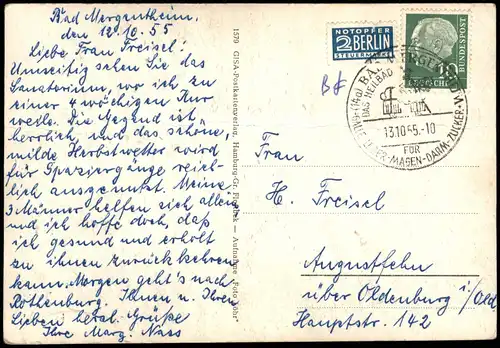 Bad Mergentheim,
den 12.10.55
Liebe Frau Freisel!
Umseitig sehen Sie das
Sanatorium, wo ich zu
einer 4 wöchigen Kur
weile. Die Gegend ist
herrlich, und das schöne,
milde Herbstwetter wird
für Spaziergänge reich-
lich ausgenutzt. Meine
3 Männer helfen sich allein
und ich hoffe doch, daß
ich gesund und erholt
zu ihnen zurückkehren
kann. Morgen geht's nach
Rothenburg. Ihnen u. Ihren
Lieben herzl. Grüße
Ihre Marg. Nass
GISA-Postkartenverlag, Hamburg-Gr.
NOTOPFER
2 BERLIN
STEUERMARKE
DEUTSCHE BUNDESPOST
10
BAD MERGENTHEIM
DAS HEILBAD
13.10.55.-10
FÜR
MAGEN-DARM-ZUCKER
Frau
H. Freisel
Augustfehn
über Oldenburg i/Old
Hauptstr. 142